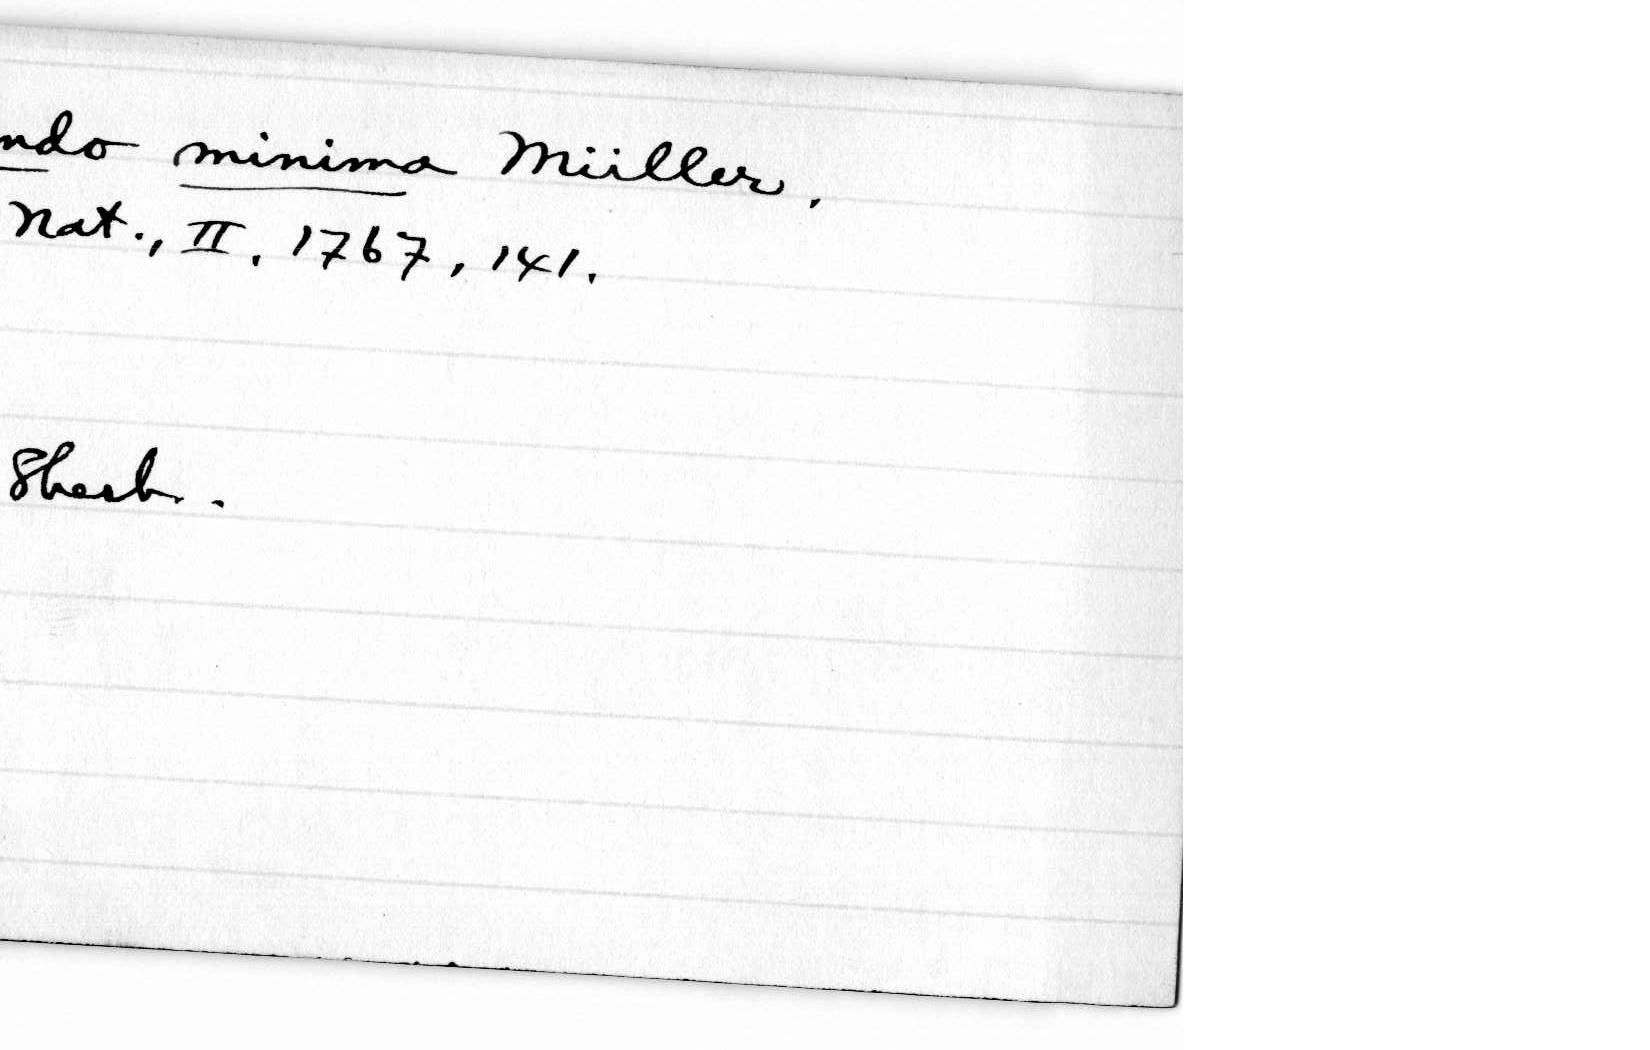 ndo minima Müller,
Nat., II, 1767, 141.
Sherb.